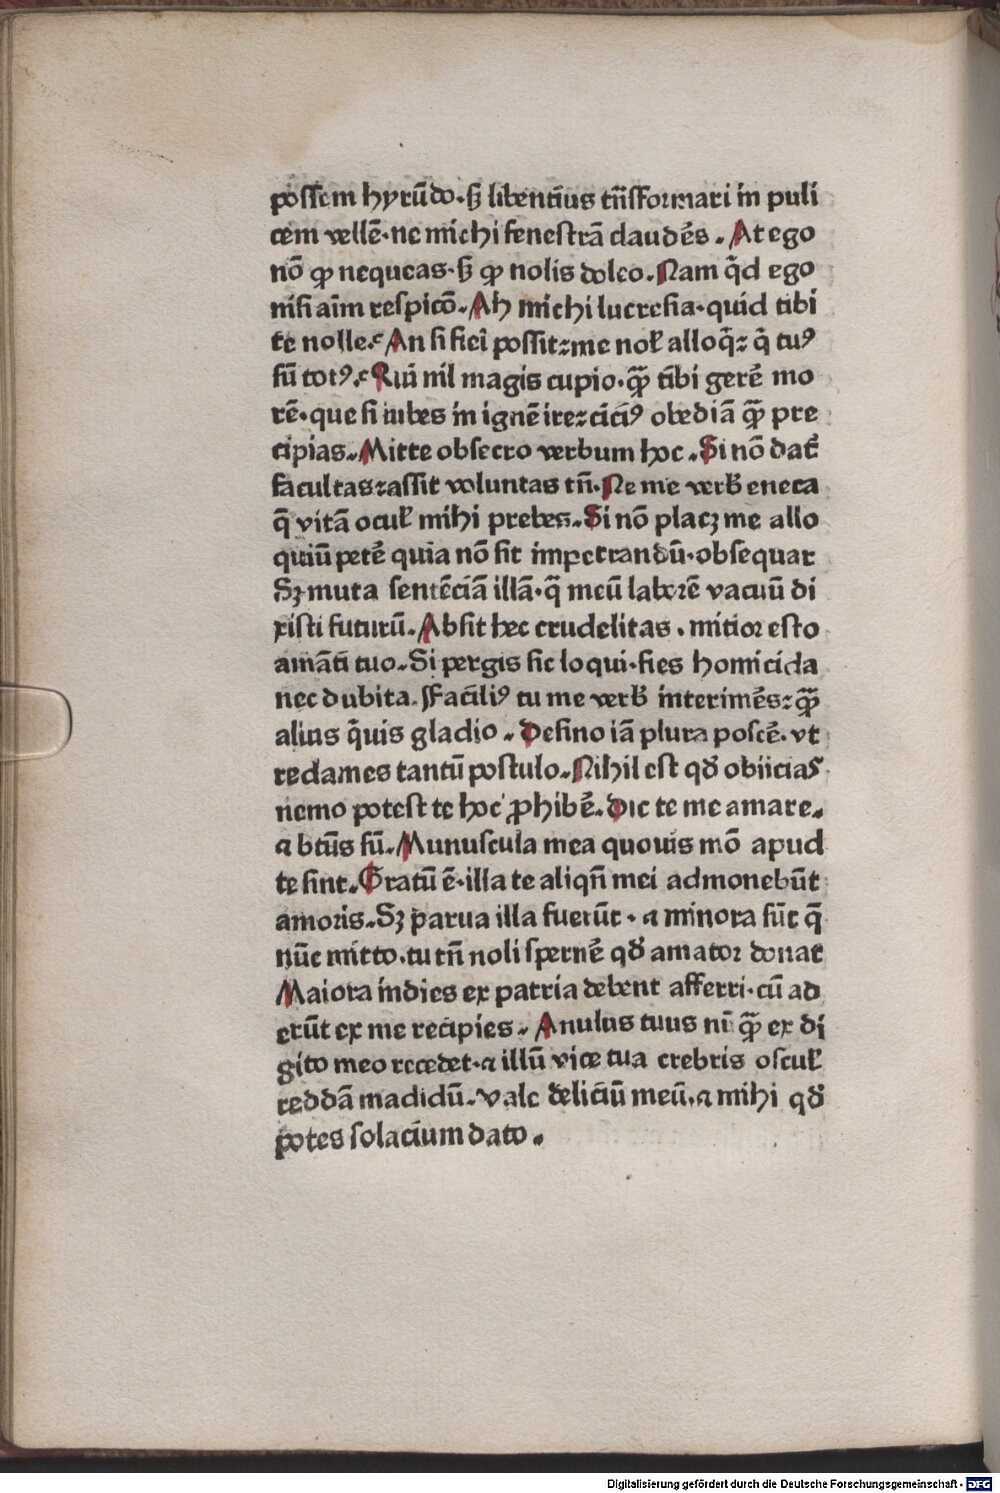 possem hyrūdo·sꝫ libentiꝰ tn̄sformari in puli
cem vellē·ne michi fenestrā claudēs. At ego
nō ꝙ nequeas·sꝫ ꝙ nolis doleo. Nam q̄d ego
nisi aīm respicō. Ah michi lucresia·quid tibi
te nolle? An si fieri possit me alloq̄ q̄ tuꝰ
sū totꝰ? Qui nil magis cupio·q̄ꝫ tibi gerē mo
rē·que si iubes in ignē ire ciciꝰ obediā q̄ꝫ pre
cipias. Mitte obsecro verbum hoc. Si nō dat̄
facultas assit voluntas tn̄. Ne me verb̄ eneca
q̄ vitā ocul̄ mihi prebes. Si nō placꝫ me allo
quiū petē quia nō sit impetrandū·obsequar
Sꝫ muta sentēciā illā·q̄ meū laborē vacuū di
xisti futurū. Absit hec crudelitas. mitior esto
amāti tuo. Si pergis sic loqui·fies homicida
nec dubita. ffaciliꝰ tu me verb̄ interimēs q̄ꝫ
alius q̄uis gladio. Desino iā plura poscē· vt
redames tantū postulo. Nihil est qd̄ obiicias
nemo potest te hoc ꝓhibē. dic te me amare.
⁊ btūs sū. Munuscula mea quouis mō apud
te sint. Gratū ē·illa te aliqn̄ mei admonebūt
amoris. Sꝫ parua illa fuerūt·⁊ minora sūt q̄
nūc mitto. tu tn̄ noli spernē qd̄ amator donat
Maiora indies ex patria debent afferri·cū ad
erūt ex me recipies. Anulus tuus nū q̄ꝫ ex di
gito meo recedet·⁊ illū vice tua crebris oscul̄
reddā madidū. vale deliciū meū.⁊ mihi qd̄
potes solacium dato.
Digitalisierung gefördert durch die Deutsche Forschungsgemeinschaft - DFG